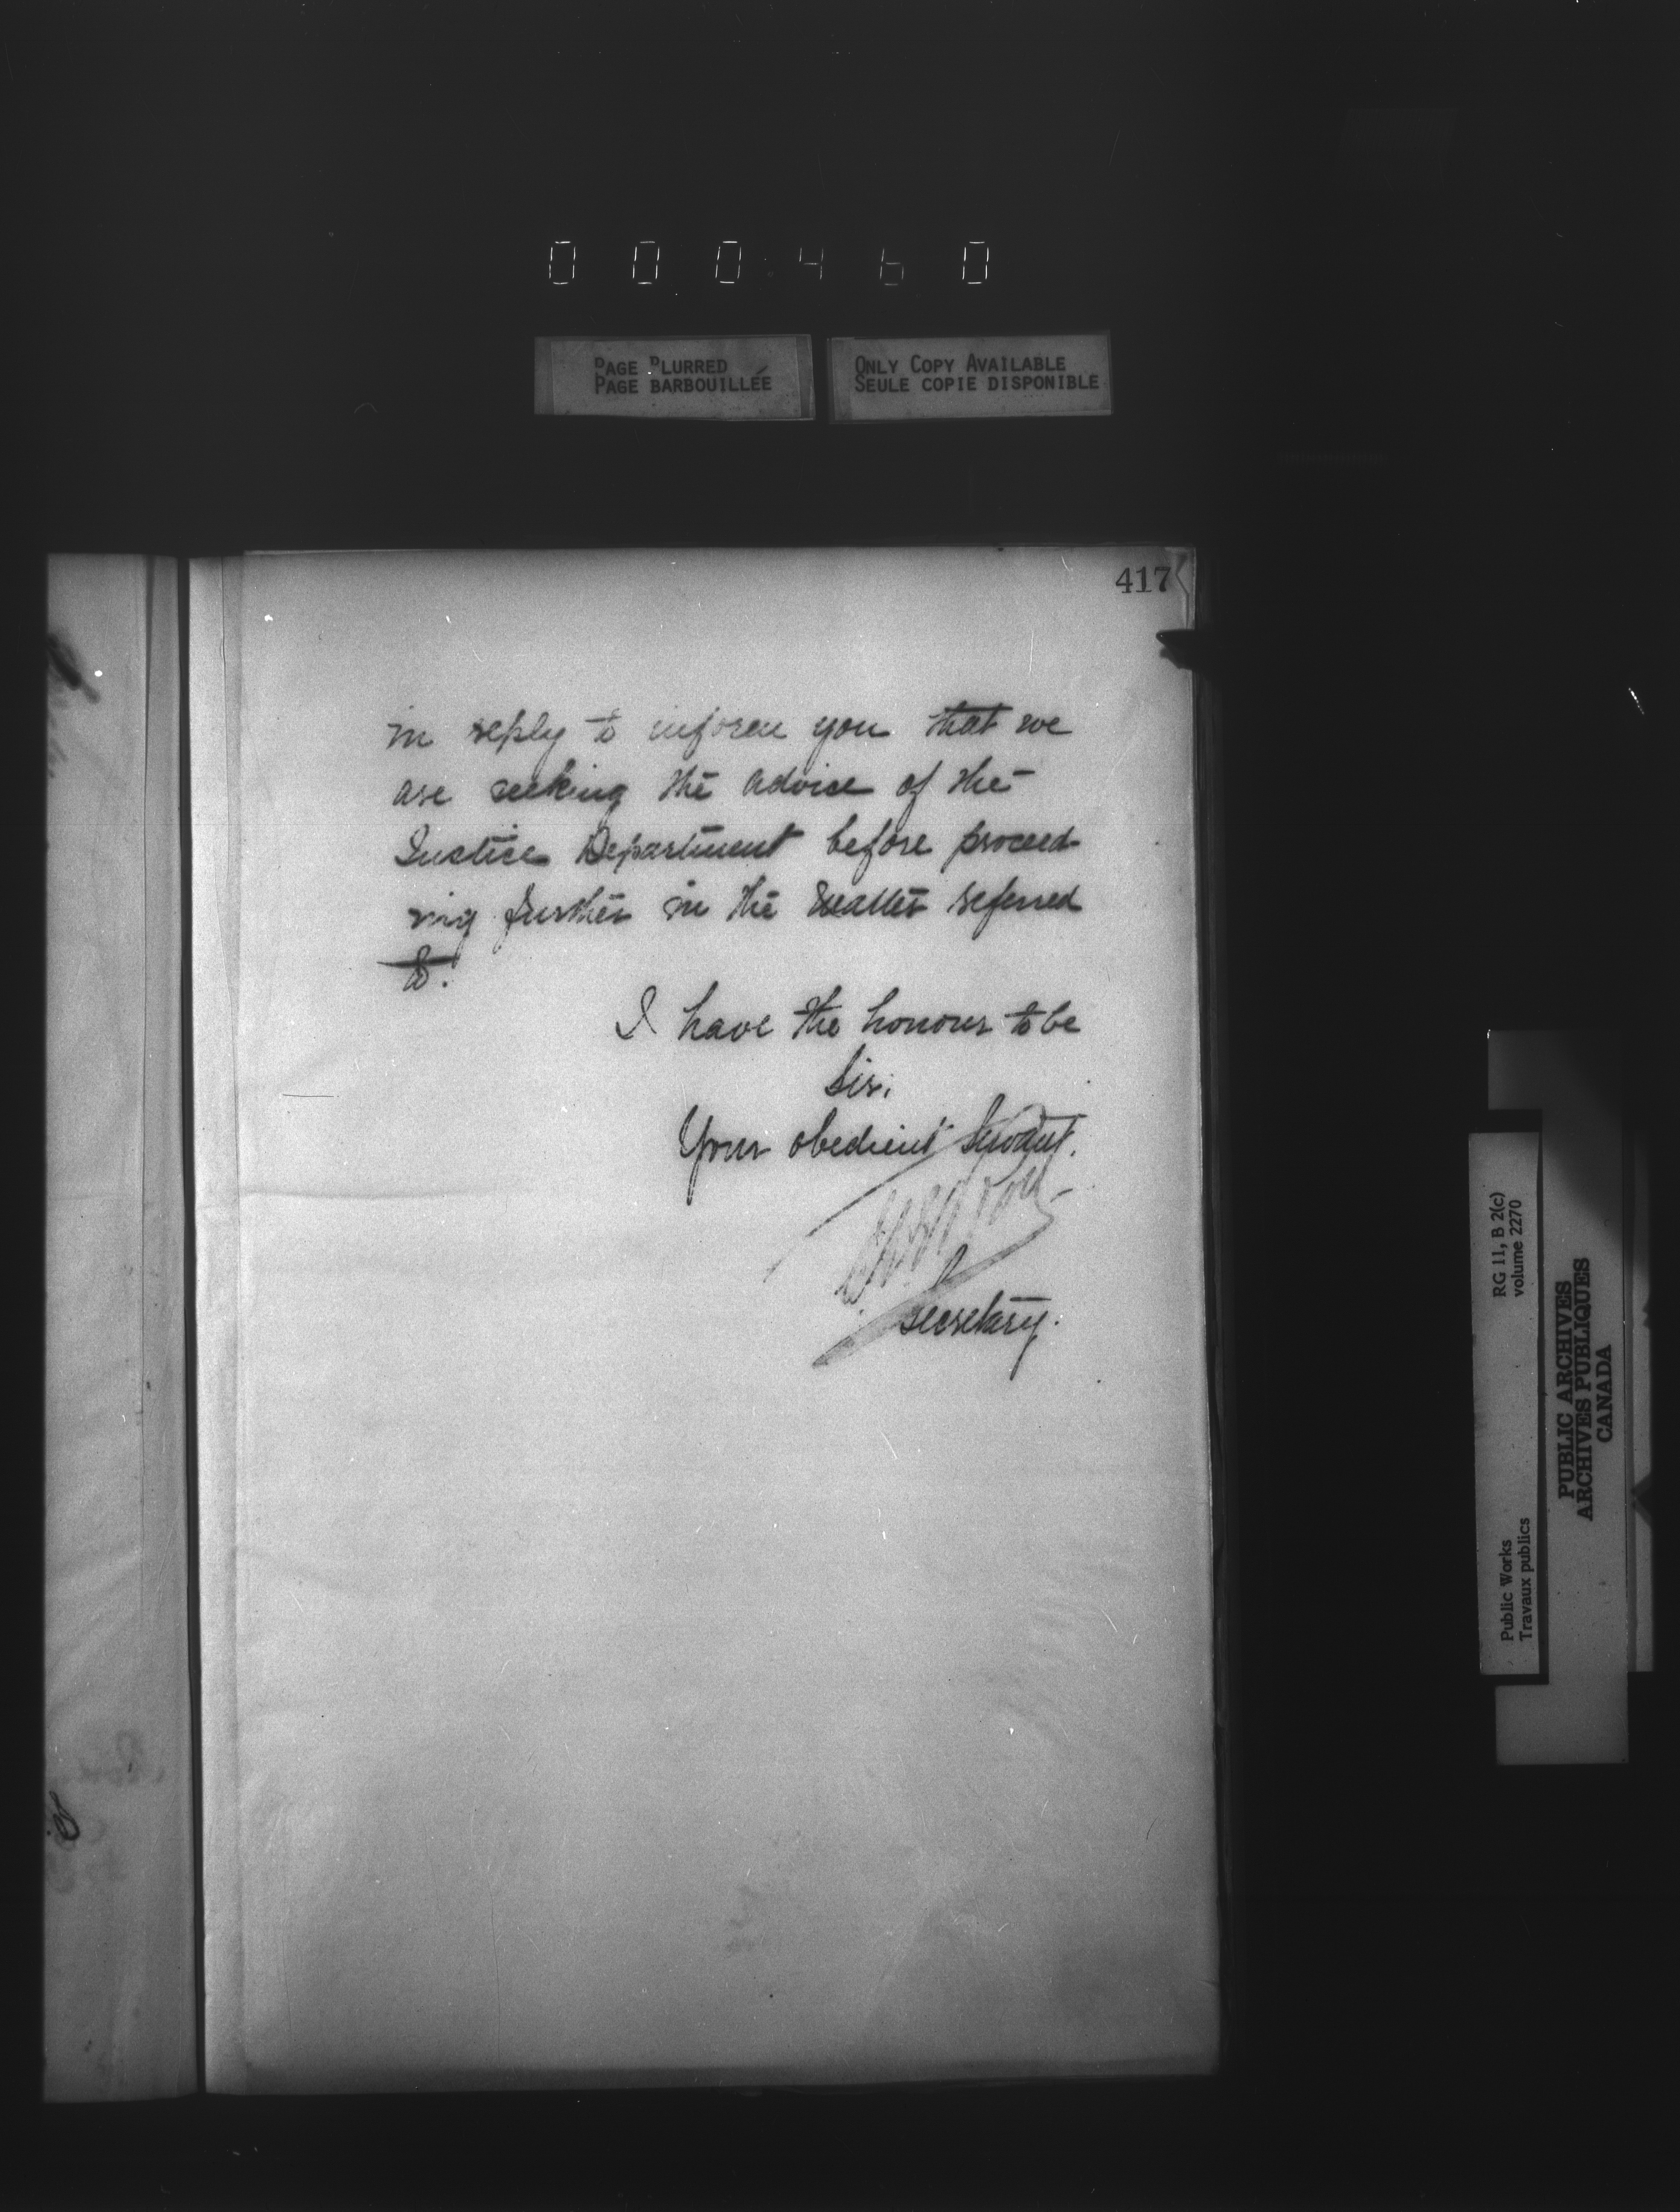 000460
PAGE BLURRED
PAGE BARBOUILLÉE
ONLY COPY AVAILABLE
SEULE COPIE DISPONIBLE
417
in reply to inform you that we
are seeking the advice of the
Justice Department before proceed-
ing further in the matter referred
to.
I have the honour to be
Sir,
Your obedient Servant.
Secretary.
RG 11, B 2(c)
volume 2270
Public Works
Travaux publics
PUBLIC ARCHIVES
ARCHIVES PUBLIQUES
CANADA